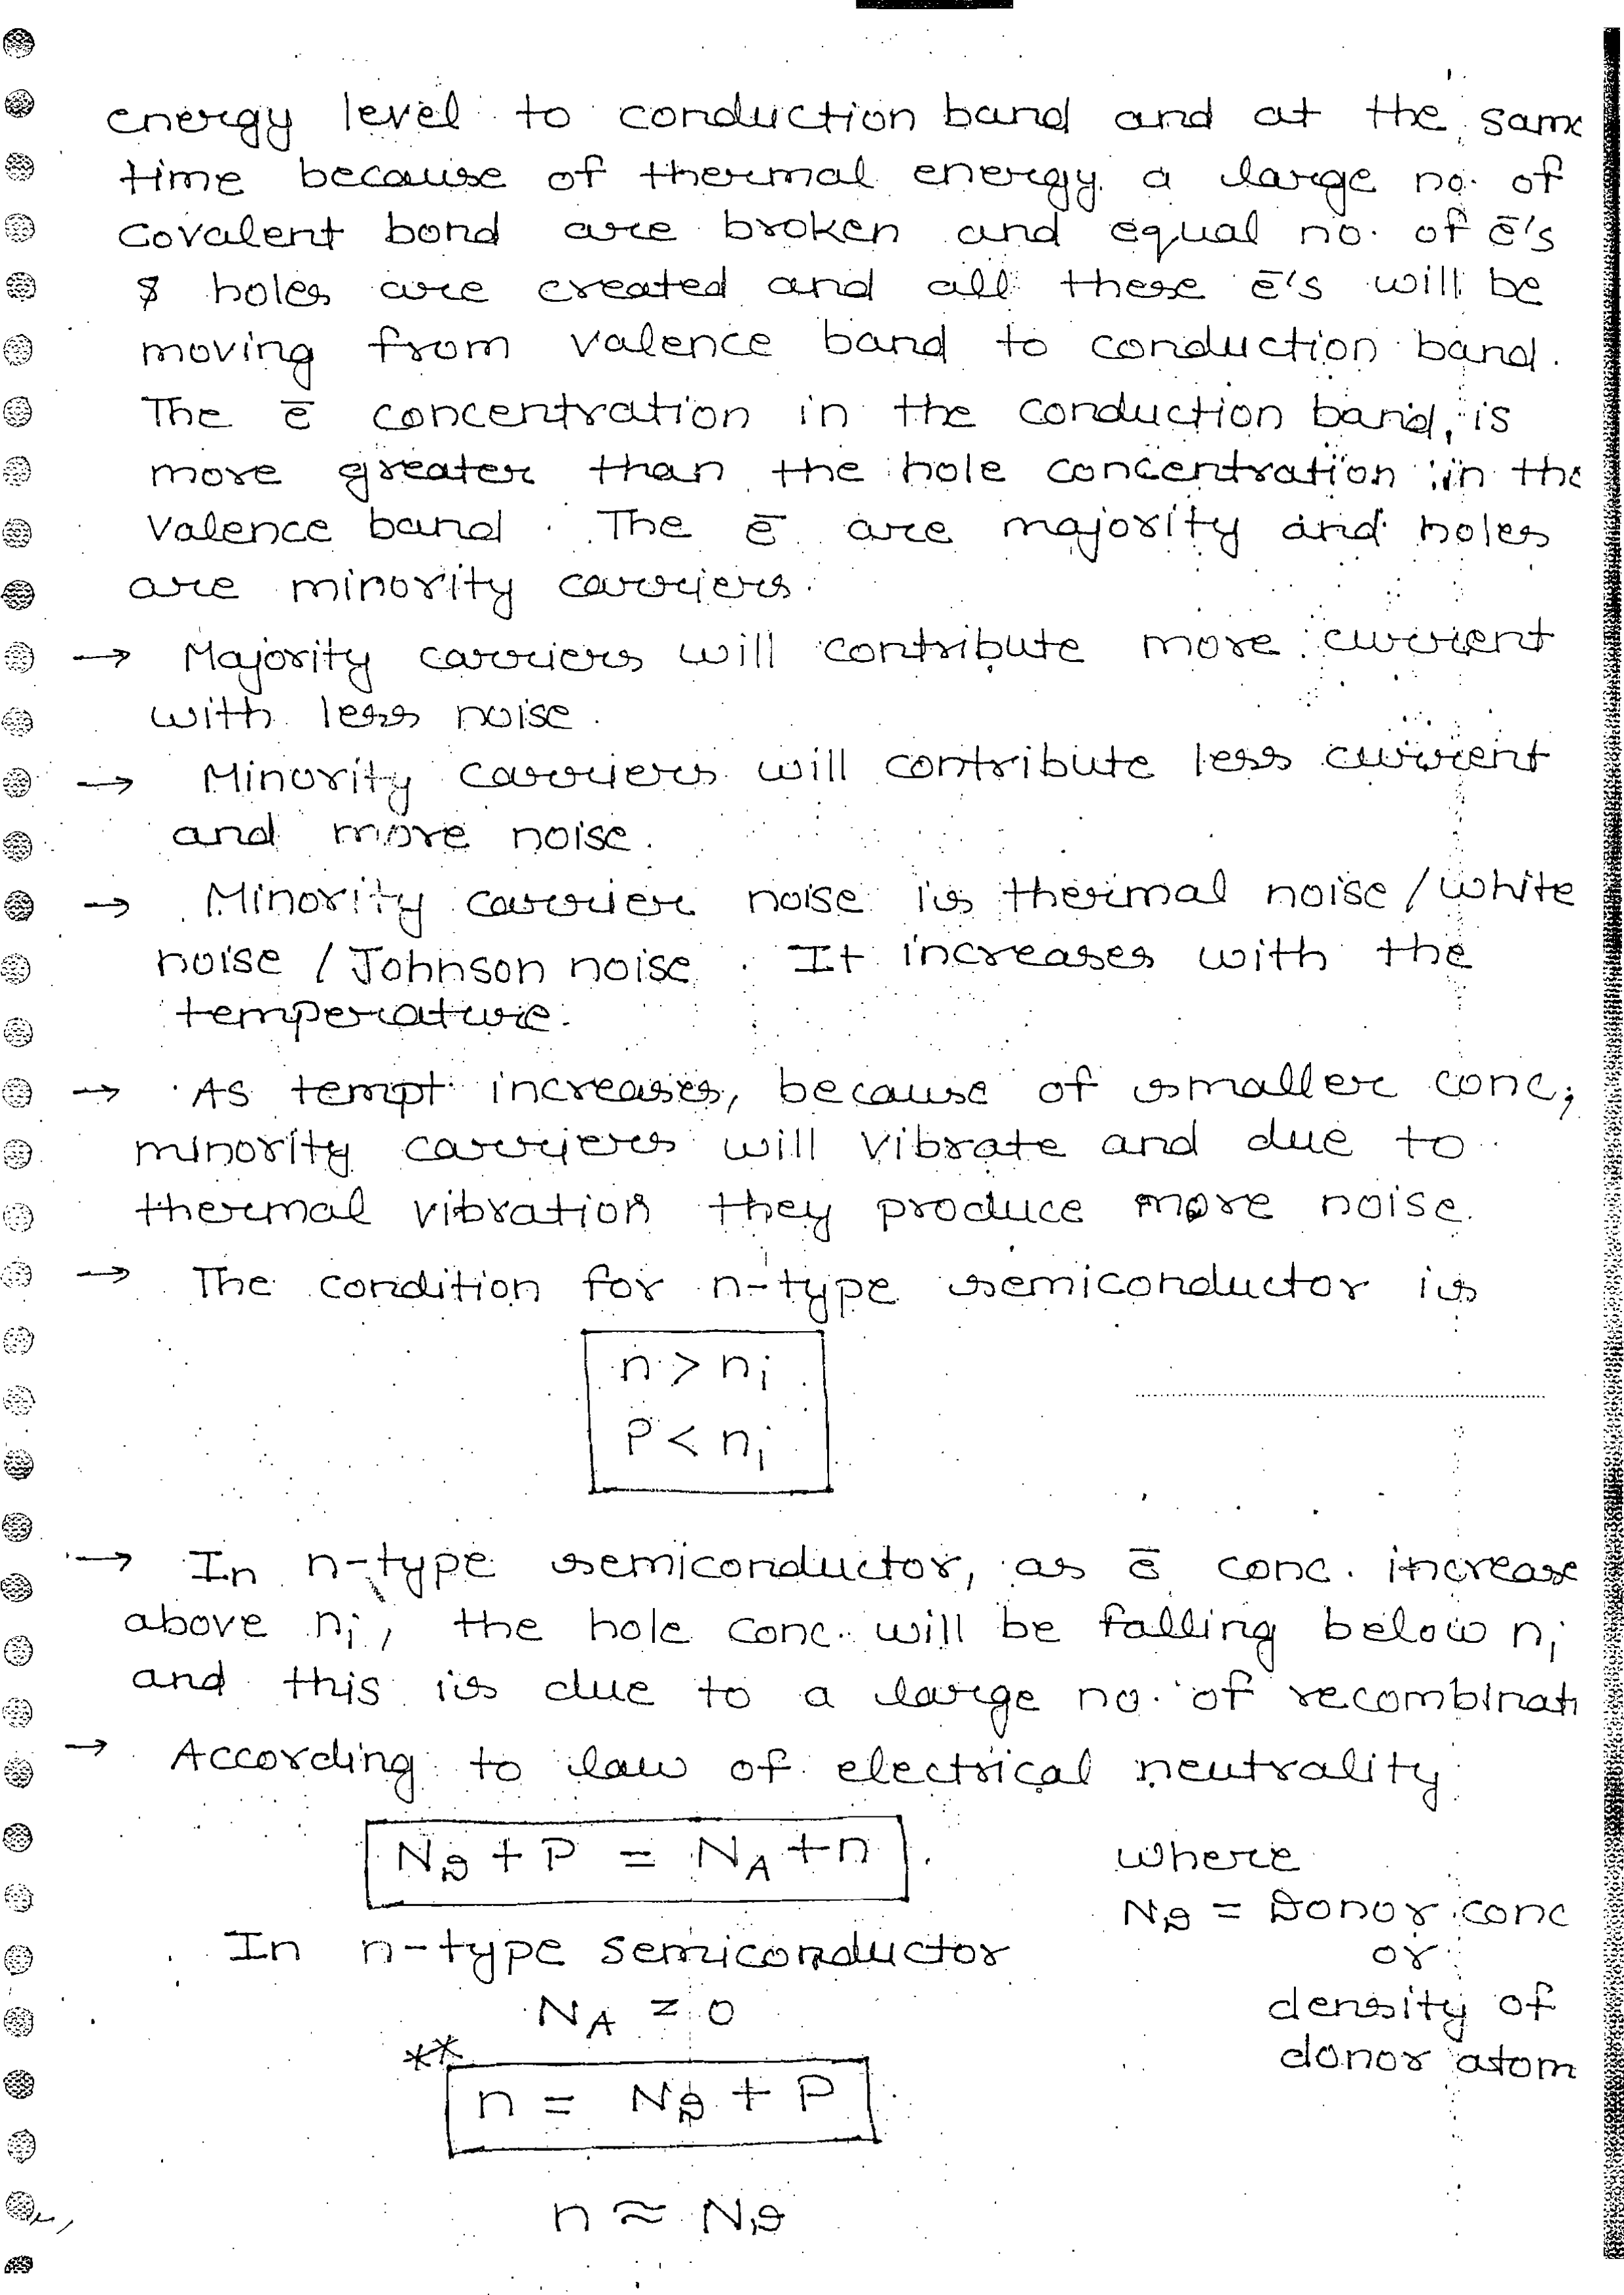 energy level to conduction band and at the same
time because of thermal energy a large no. of
covalent bond are broken and equal no. of ē's
& holes are created and all these ē's will be
moving from valence band to conduction band.
The ē concentration in the conduction band, is
more greater than the hole concentration in the
valence band. The ē are majority and holes
are minority carriers.
→ Majority carriers will contribute more current
with less noise.
→ Minority carriers will contribute less current
and more noise.
→ Minority carrier noise is thermal noise / white
noise / Johnson noise. It increases with the
temperature.
→ As tempt increases, because of smaller conc;
minority carriers will vibrate and due to
thermal vibration they produce more noise.
→ The condition for n-type semiconductor is
n > nᵢ
P < nᵢ
→ In n-type semiconductor, as ē conc. increase
above nᵢ, the hole conc. will be falling below nᵢ
and this is due to a large no. of recombinati
→ According to law of electrical neutrality
N_D + P = N_A + n
where
N_D = Donor conc
or
density of
donor atom
In n-type semiconductor
N_A = 0
**
n = N_D + P
n ≈ N_D